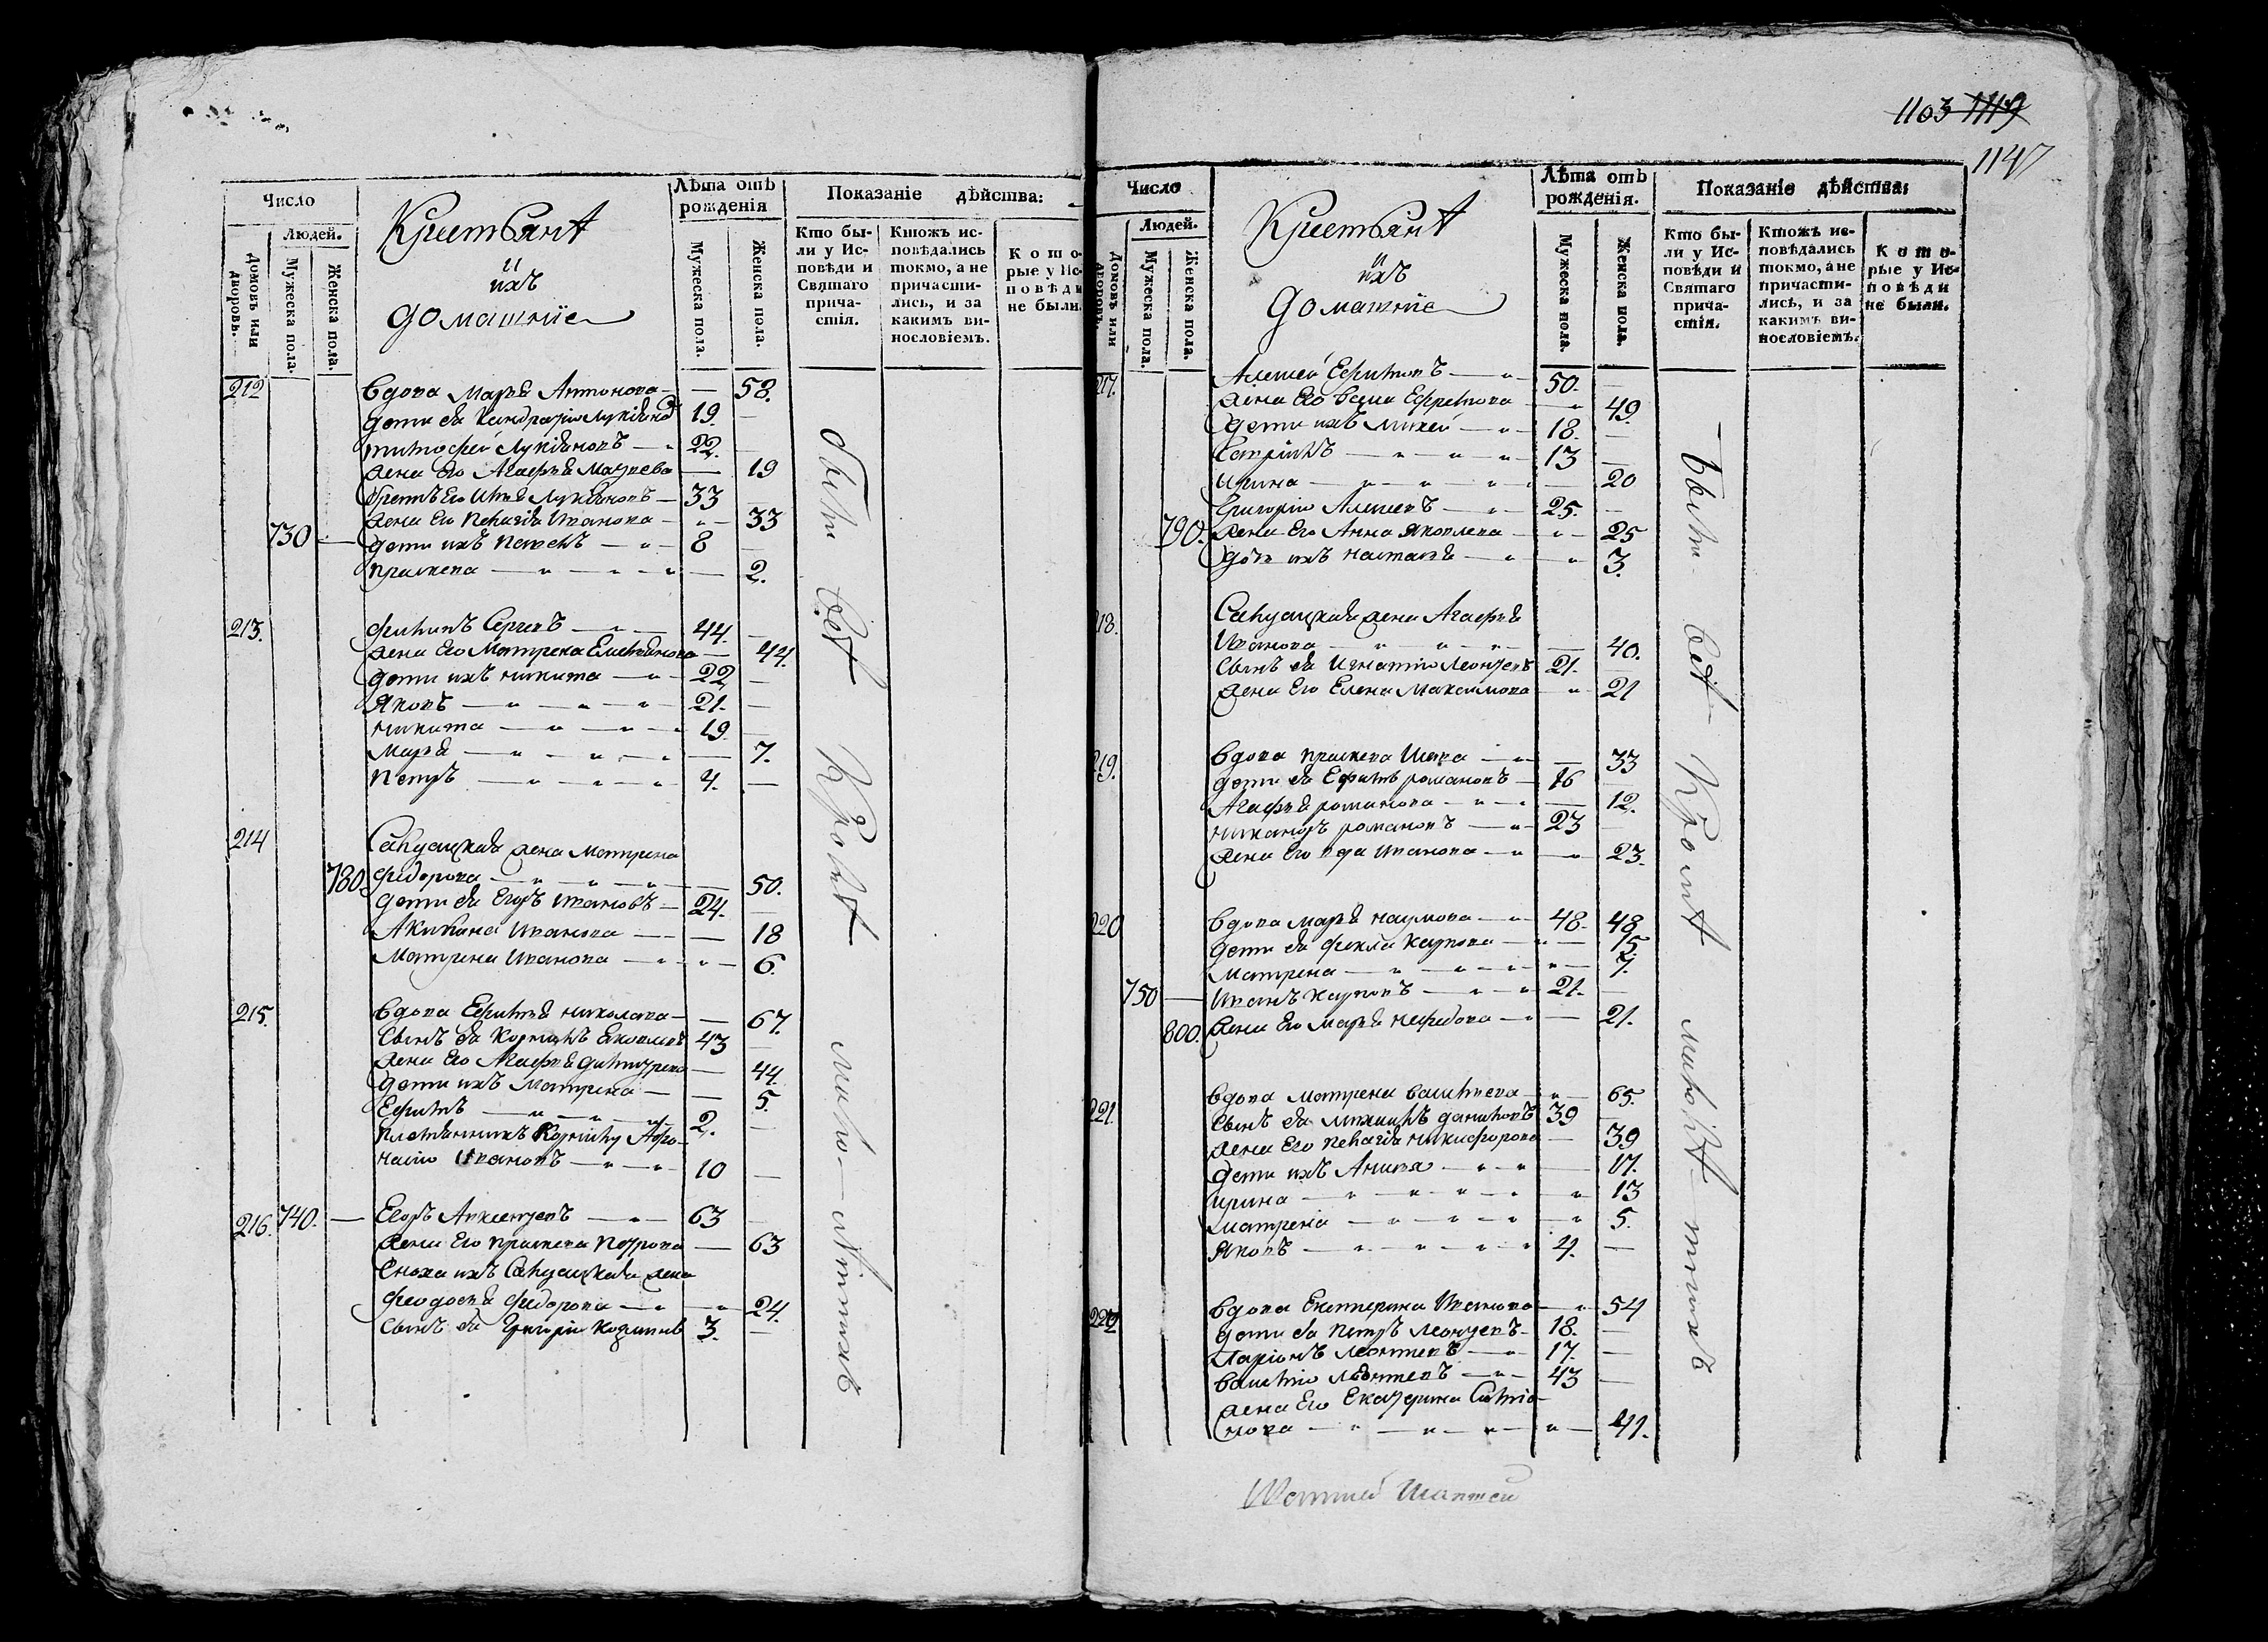 1103 1119
1147
Число
Людей.
Домовъ или дворовъ.
Мужеска пола.
Женска пола.
Крестьянѣ
и
ихъ
домашніе
Лѣта отъ рожденія
Мужеска пола.
Женска пола.
Показаніе дѣйства:
Кто были у Исповѣди и Святаго причастія.
Ктожъ исповѣдались токмо, а не причастились, и за какимъ винословіемъ.
Которые у Исповѣди не были.
212 вдова Марья Антонова — 58.
дети ея Кандратій Лукьяновъ 19.
тимофей Лукьяновъ 22.
жена его Агафья 19
братъ его Илья Лукьяновъ 33
жена его Пелагия Иванова 33
730 — дети ихъ Павелъ 8
прасковя 2.
213. Филипъ Сергевъ 44.
жена его Матрена Емельянова 44.
дети ихъ никита 22
Яковъ 21.
никита 19.
Марья 7.
Петръ 4.
214 Салдацкая жена Матрена
780. Федорова 50.
дети ея Егоръ Ивановъ 24.
Акилина Иванова 18
Матрена Иванова 6.
215. вдова Ефимья николаева 67.
Сынъ ея 43
жена его Агафья 44.
дети ихъ Матрена 5.
Ефимъ 2.
племянникъ Афо-
насій Ивановъ 10
216. 740. — Егоръ Авксентьевъ 63
жена его прасковя Петрова 63
Сноха ихъ Салдацкая жена
Феодосья Федорова 24.
Сынъ ея Григорій Козминъ 3.
были всѣ кромѣ малолѣтнихъ
Число
Людей.
Домовъ или дворовъ.
Мужеска пола.
Женска пола.
Крестьянѣ
и
ихъ
домашніе
Лѣта отъ рожденія.
Мужеска пола.
Женска пола.
Показаніе дѣйства:
Кто были у Исповѣди и Святаго причастія.
Ктожъ исповѣдались токмо, а не причастились, и за какимъ винословіемъ.
Которые у Исповѣди не были.
217. Алексей Ефимовъ 50.
жена его Ефремова 49.
дети ихъ 18.
13
ирина 20
Григорій Алексевъ 25.
790. жена его Анна Яковлева 25
дочь ихъ настасья 3.
218. Салдацкая жена Агафья
Иванова 40.
Сынъ ея Игнатій Леонтьевъ 21.
жена его Елена Максимова 21
219. вдова прасковя 33
дети ея Ефимъ романовъ 16
Агафья романова 12.
никаноръ романовъ 23
жена его Иванова 23.
220 вдова марья наумова 48. 48
дети ея Фекла карпова 15.
Матрена 7.
750 — Иванъ карповъ 21.
800. жена его Марья нефедова 21.
221. вдова матрена васильева 65.
Сынъ ея даниловъ 39
жена его Пелагия никифорова 39
дети ихъ Анисья 17.
ирина 13
матрена 5.
Яковъ 4.
222 вдова Екатерина Иванова 54
дети ея Петръ Леонтевъ 18.
Ларіонъ Леонтевъ 17.
василій Леонтевъ 43
жена его Екатерина Симіо-
нова 41.
были всѣ кромѣ малолѣтнихъ